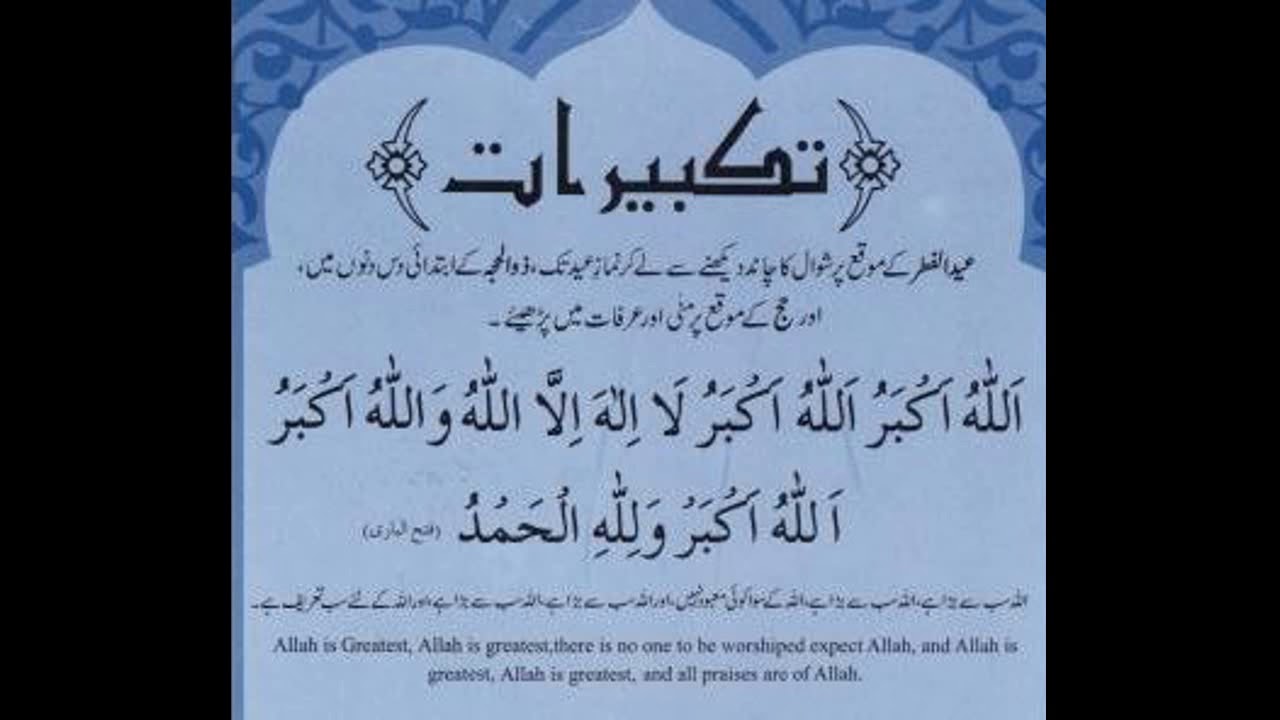 تکبیرات
عیدالفطر کے موقع پر شوال کا چاند دیکھنے سے لے کر نماز عید تک، ذوالحجہ کے ابتدائی دس دنوں میں،
اور حج کے موقع پر منٰی اور عرفات میں پڑھیئے ۔
اَللّٰهُ اَكْبَرُ اَللّٰهُ اَكْبَرُ لَا اِلٰهَ اِلَّا اللّٰهُ وَاللّٰهُ اَكْبَرُ
اَللّٰهُ اَكْبَرُ وَلِلّٰهِ الْحَمْدُ (فتح الباری)
اللہ سب سے بڑا ہے، اللہ سب سے بڑا ہے، اللہ کے سوا کوئی معبود نہیں، اور اللہ سب سے بڑا ہے، اللہ سب سے بڑا ہے، اور اللہ کے لئے سب تعریف ہے۔
Allah is Greatest, Allah is greatest,there is no one to be worshiped expect Allah, and Allah is
greatest, Allah is greatest, and all praises are of Allah.